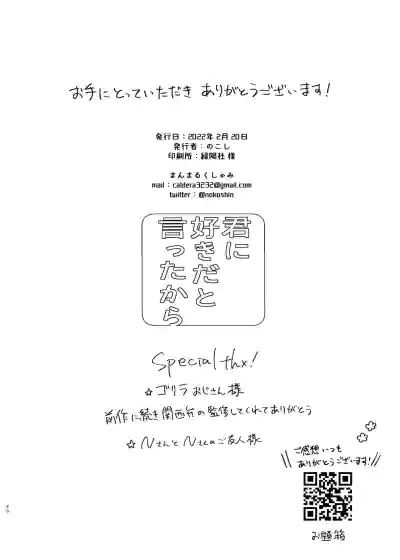 お手にとっていただき ありがとうございます!
発行日：2022年 2月 20日
発行者：のこし
印刷所：緑陽社 様
まんまるくしゃみ
mail：caldera3232@gmail.com
twitter：@nokoshin
君に
好きだと
言ったから
Special thx!
☆ゴリラおじさん様
前作に続き関西弁の監修してくれてありがとう
☆NさんとNさんのご友人様
ご感想いつも
ありがとうございます!
お題箱